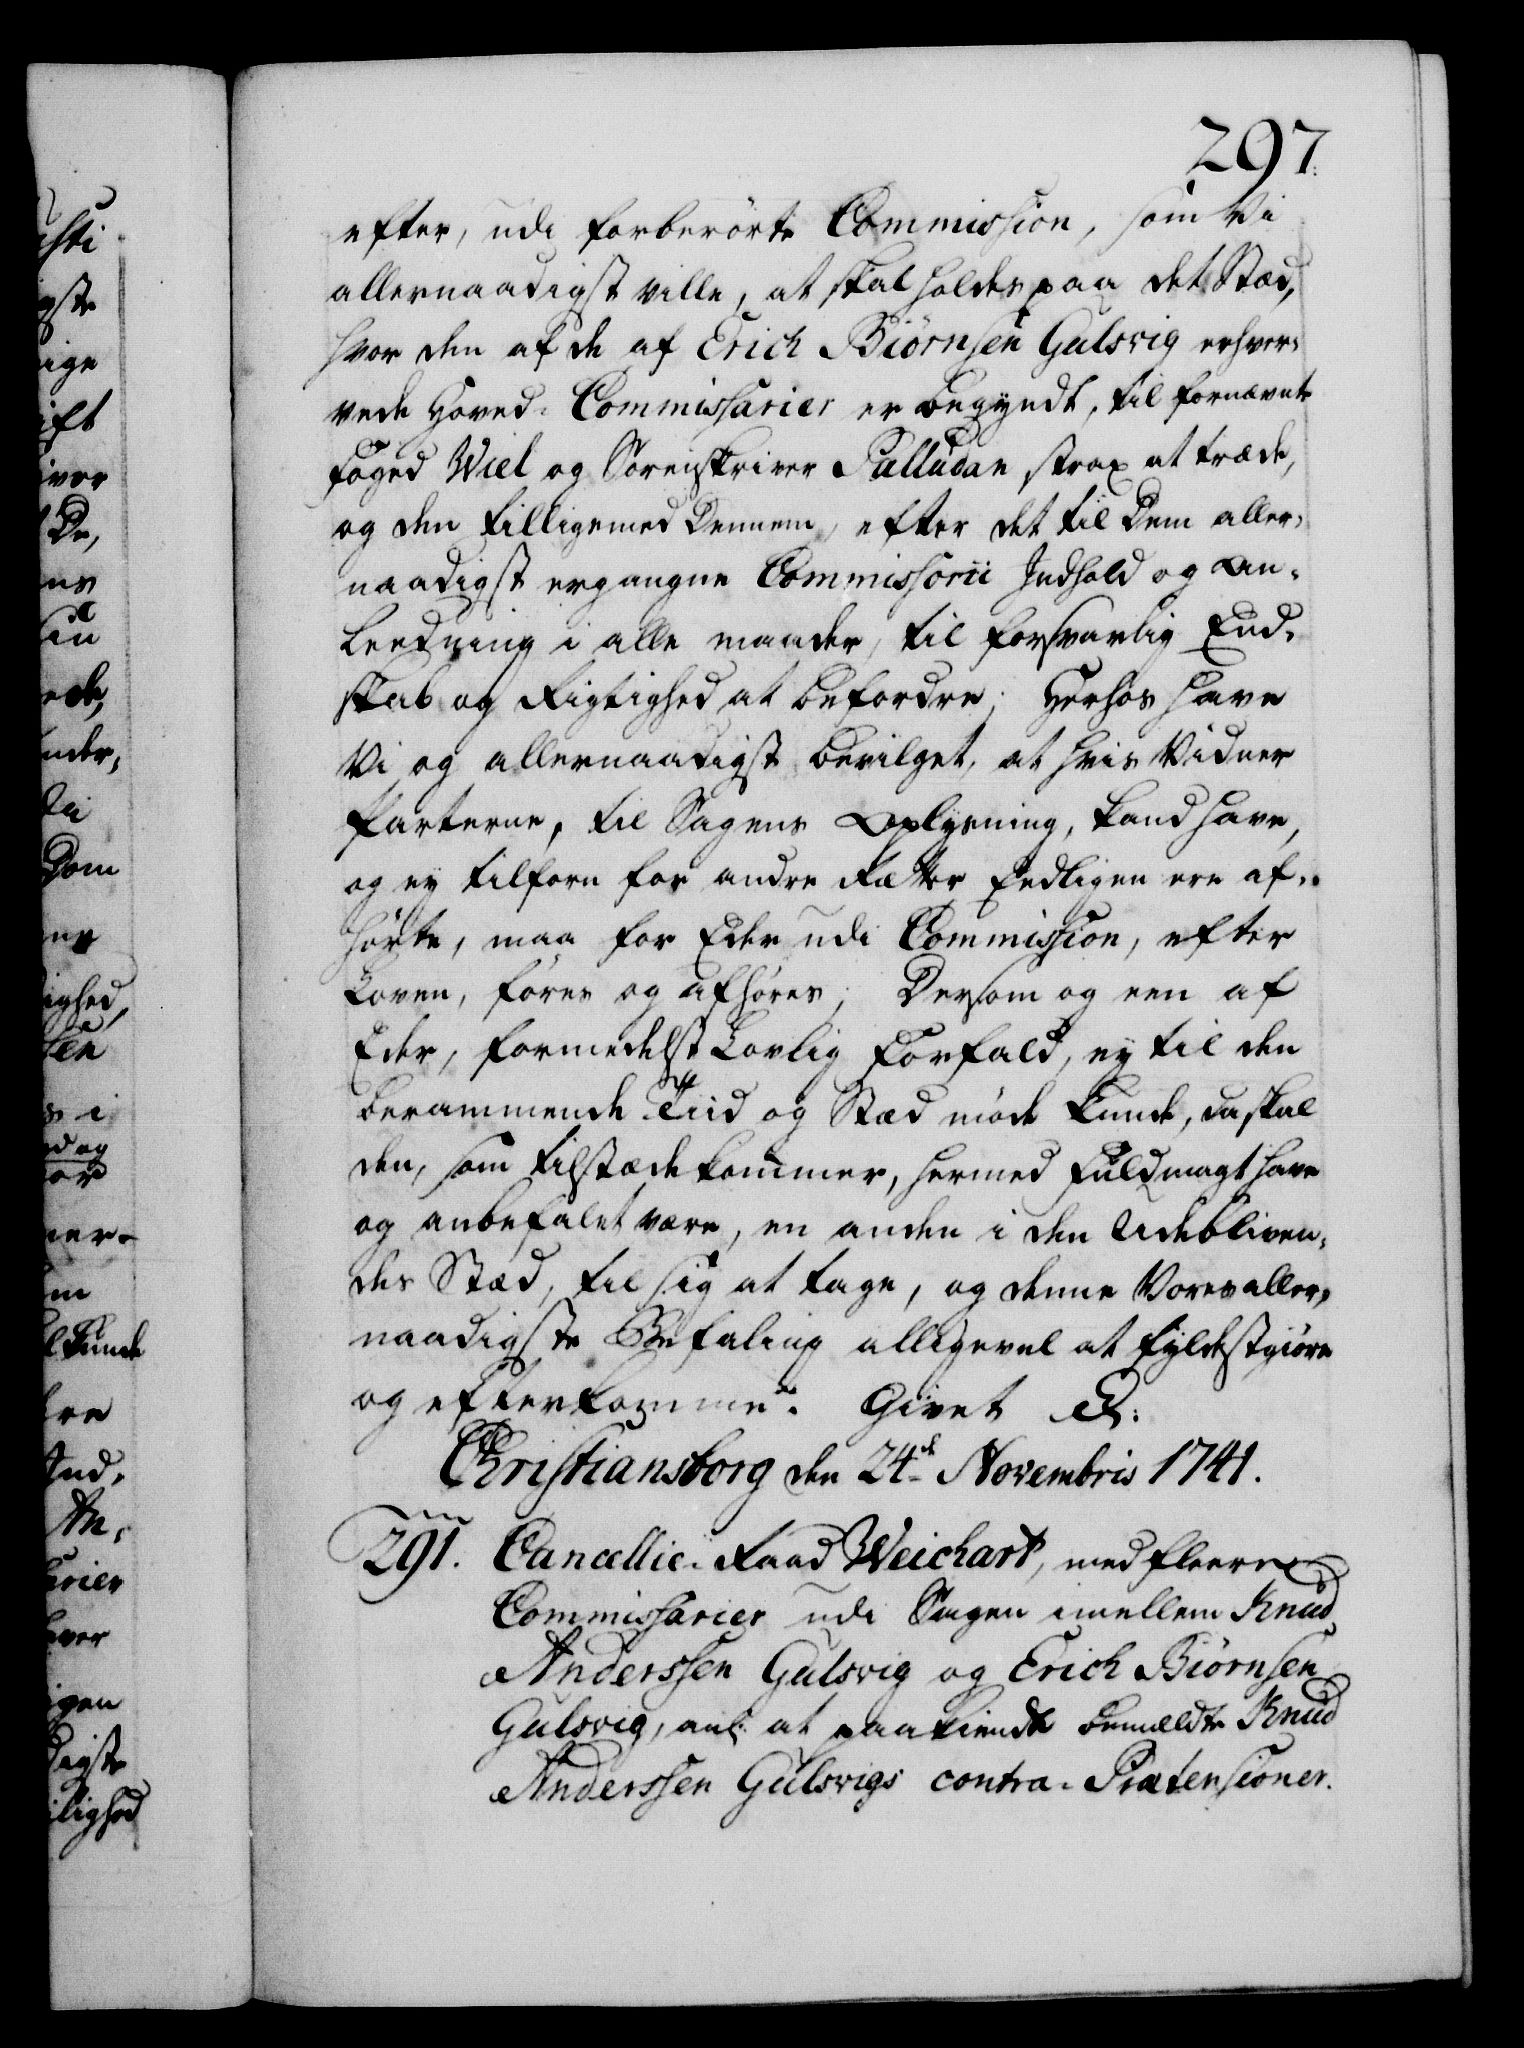 297.
efter, udi forberørte Commission, som Vi
allernaadigst ville, at skal holdes paa det Stæd,
hvor den af de af Erich Biørnsen Gulsvig erhver-
vede Hoved-Commissarier er begyndt, til fornævnte
Foged Wiel og Sorenskriver Palludan strax at træde,
og den tilligemed Dennem, efter det til Dem aller-
naadigst ergangne Commissorii Indhold og An-
leedning i alle maader, til forsvarlig End-
skab og Rigtighed at befordre; Herhos have
Vi og allernaadigst bevilget, at hvis Vidner
Parterne, til Sagens Oplysning, kand have,
og ey tilforn for andre Rætter Eedligen ere af-
hørte, maa for Eder udi Commission, efter
Loven, føres og afhøres; Dersom og een af
Eder, formedelst Lovlig Forfald, ey til den
berammende Tiid og Stæd møde kunde, da skal
den, som tilstæde kommer, hermed Fuldmagt have
og anbefalet være, en anden i den Udebliven-
des Stæd, til sig at tage, og denne Vores aller-
naadigste Befaling alligevel at fyldestgiøre
og efterkomme. Givet &c:
Christiansborg den 24de Novembris 1741.
291. Cancellie-Raad Weichart, med fleere
Commissarier udi Sagen imellem Knud
Anderssen Gulsvig og Erich Biørnsen
Gulsvig, anl: at paakiende bemældte Knud
Anderssen Gulsvigs contra-Prætensioner.